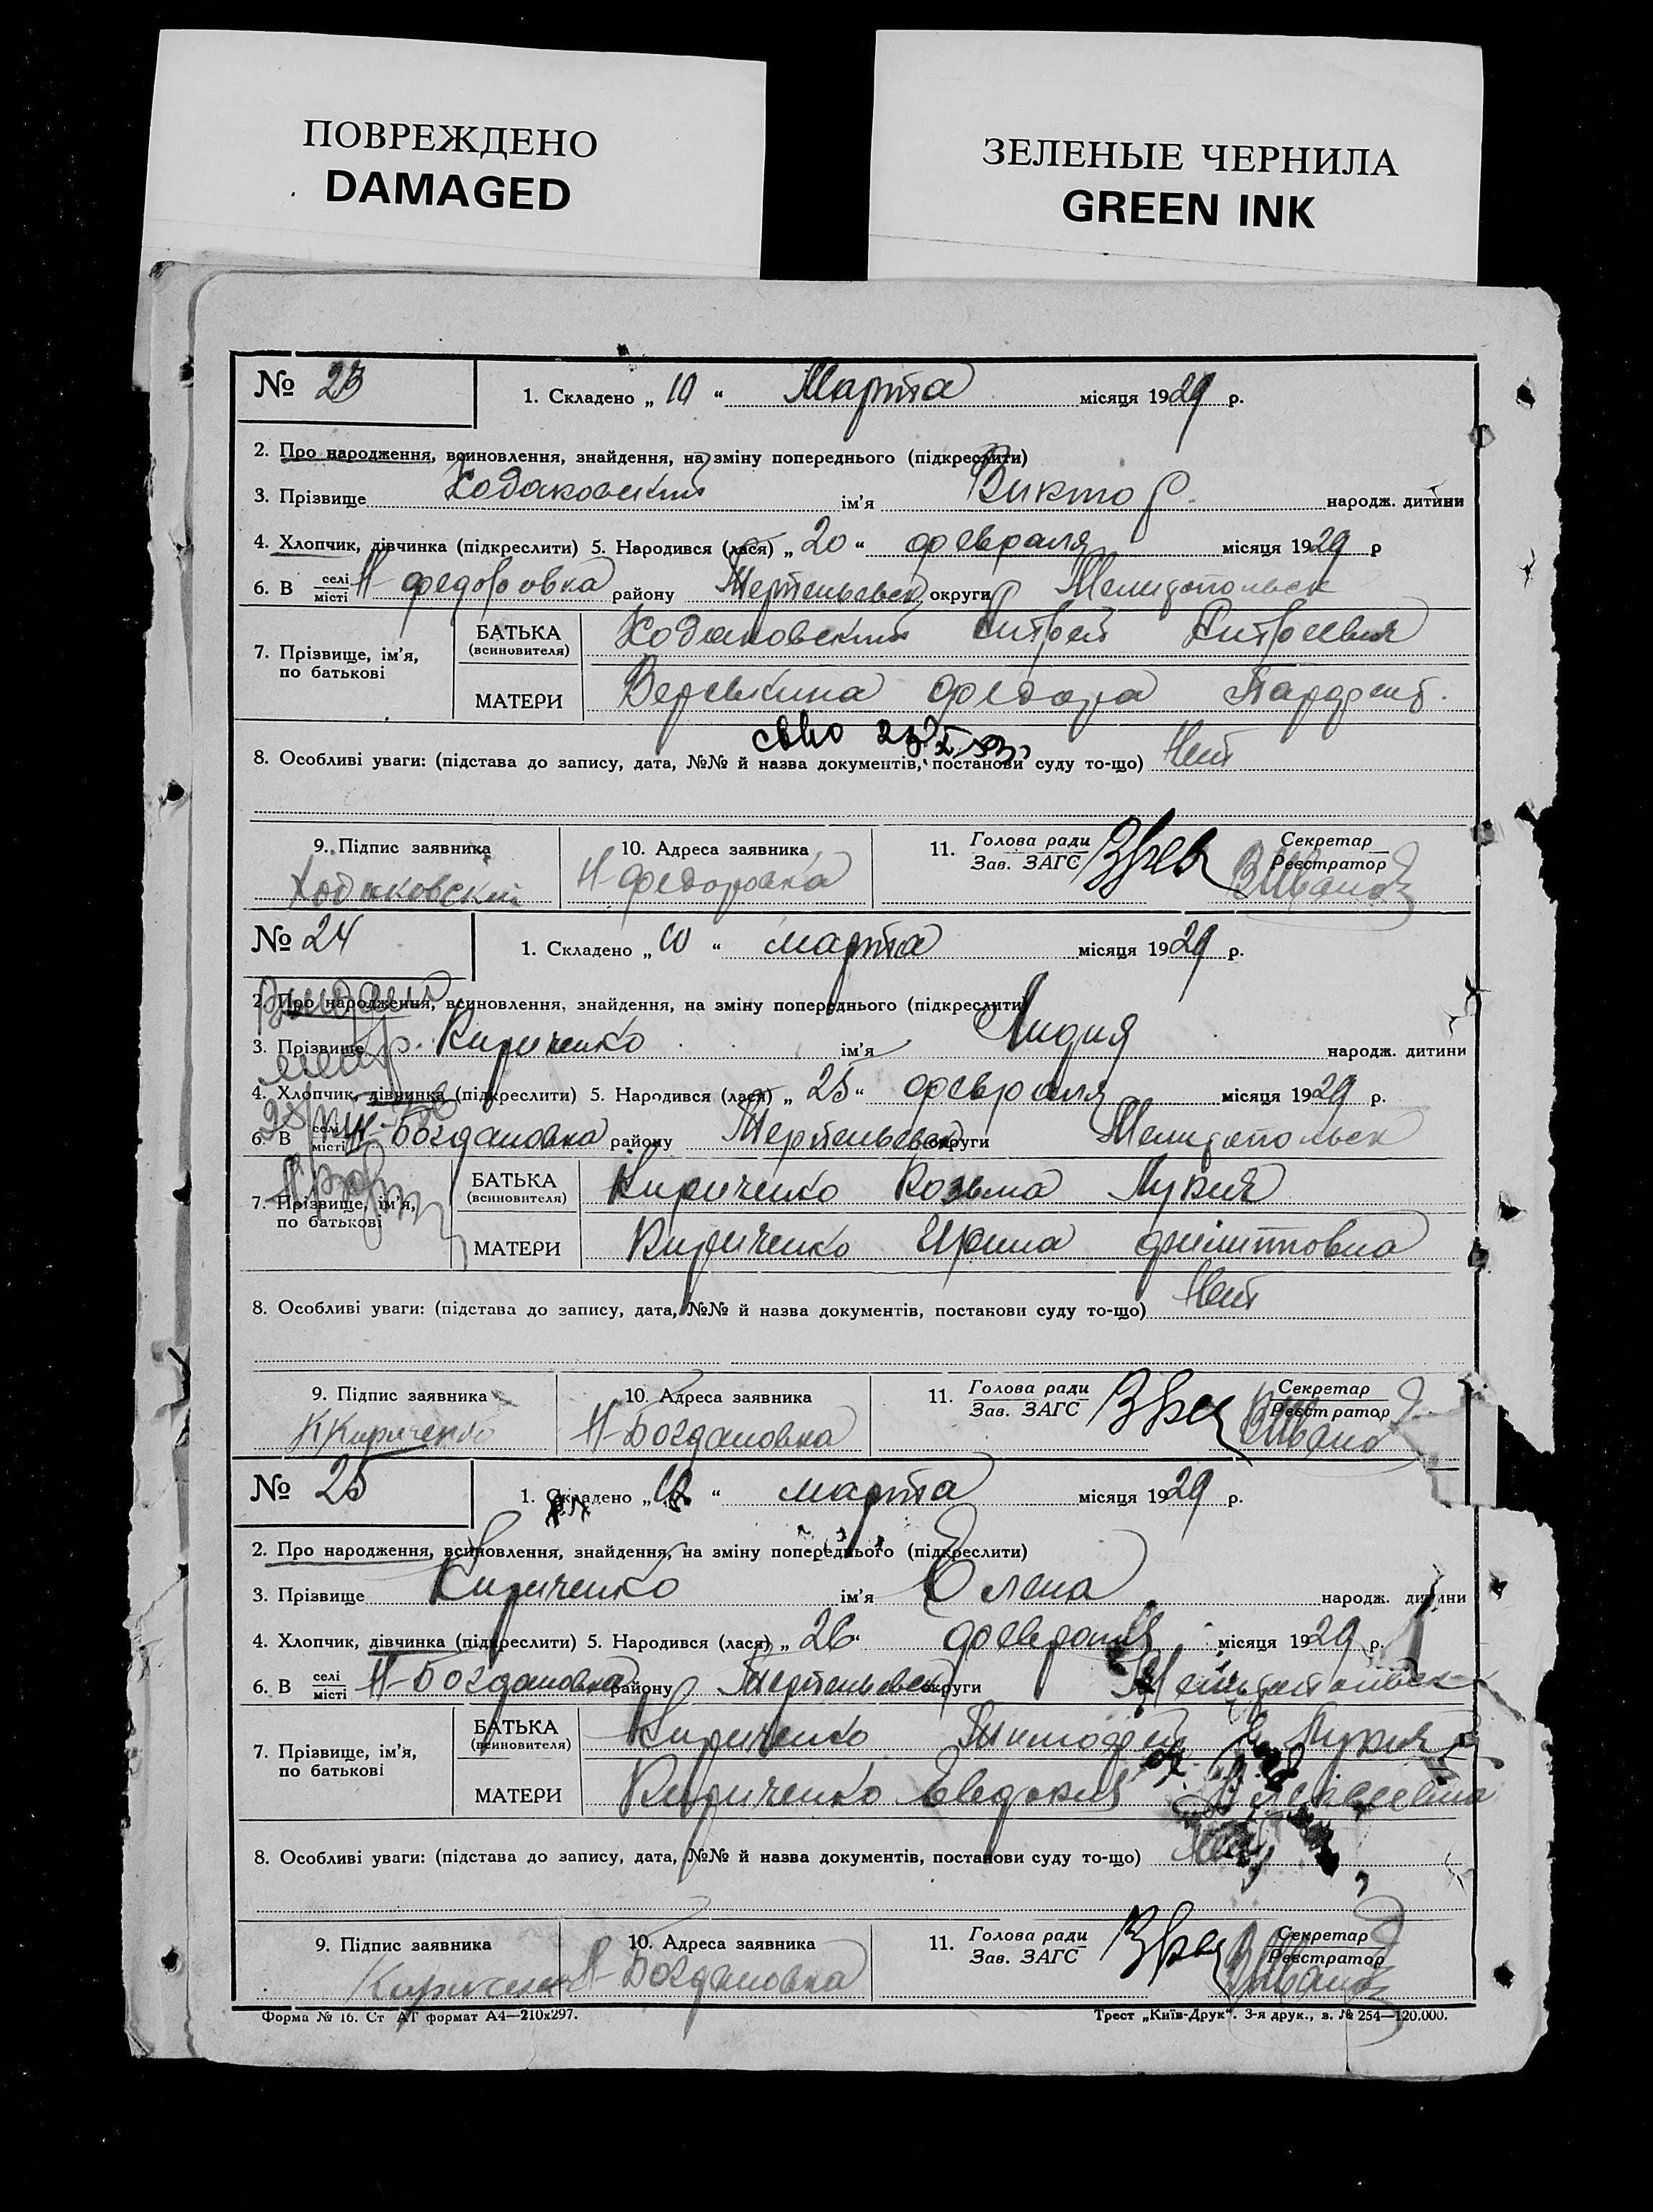 ПОВРЕЖДЕНО
DAMAGED
ЗЕЛЕНЫЕ ЧЕРНИЛА
GREEN INK
№ 23 1. Складено „ 10 “ Марта місяця 1929 р.
2. Про народження, всиновлення, знайдення, на зміну попереднього (підкреслити)
3. Прізвище Ходаковский ім'я Виктор народж. дитини
4. Хлопчик, дівчинка (підкреслити) 5. Народився (лася) „ 20 “ февраля місяця 1929 р
6. В селі місті Н-федоровка району округи Мелитопольск
7. Прізвище, ім'я, по батькові БАТЬКА (всиновителя) Ходаковский
МАТЕРИ Веревкина Федора
8. Особливі уваги: (підстава до запису, дата, №№ й назва документів, постанови суду то-що) Нет
9. Підпис заявника 10. Адреса заявника 11. Голова ради Зав. ЗАГС Секретар Реєстратор
Ходаковский Н-Федоровка
№ 24 1. Складено „ 10 “ марта місяця 1929 р.
2. Про народження, всиновлення, знайдення, на зміну попереднього (підкреслити)
3. Прізвище Кириченко ім'я Лидия народж. дитини
4. Хлопчик, дівчинка (підкреслити) 5. Народився (лася) „ 25 “ февраля місяця 1929 р.
6. В селі місті Н-Богдановка району округи Мелитопольск
7. Прізвище, ім'я, по батькові БАТЬКА (всиновителя) Кириченко Козьма Лукич
МАТЕРИ Кириченко Ирина
8. Особливі уваги: (підстава до запису, дата, №№ й назва документів, постанови суду то-що) Нет
9. Підпис заявника 10. Адреса заявника 11. Голова ради Зав. ЗАГС Секретар Реєстратор
ККириченко Н-Богдановка
№ 25 1. Складено „ 10 “ марта місяця 1929 р.
2. Про народження, всиновлення, знайдення, на зміну попереднього (підкреслити)
3. Прізвище Кириченко ім'я Елена народж. дитини
4. Хлопчик, дівчинка (підкреслити) 5. Народився (лася) „ 26 “ февраля місяця 1929 р.
6. В селі місті Н-Богдановка району округи Мелитопольск
7. Прізвище, ім'я, по батькові БАТЬКА (всиновителя) Кириченко Тимофей Лукич
МАТЕРИ Кириченко Евдокия
8. Особливі уваги: (підстава до запису, дата, №№ й назва документів, постанови суду то-що) Нет
9. Підпис заявника 10. Адреса заявника 11. Голова ради Зав. ЗАГС Секретар Реєстратор
Кириченко Н-Богдановка
Форма № 16. Ст АТ формат А4—210х297. Трест „Київ-Друк“. 3-я друк., з. № 254—120.000.